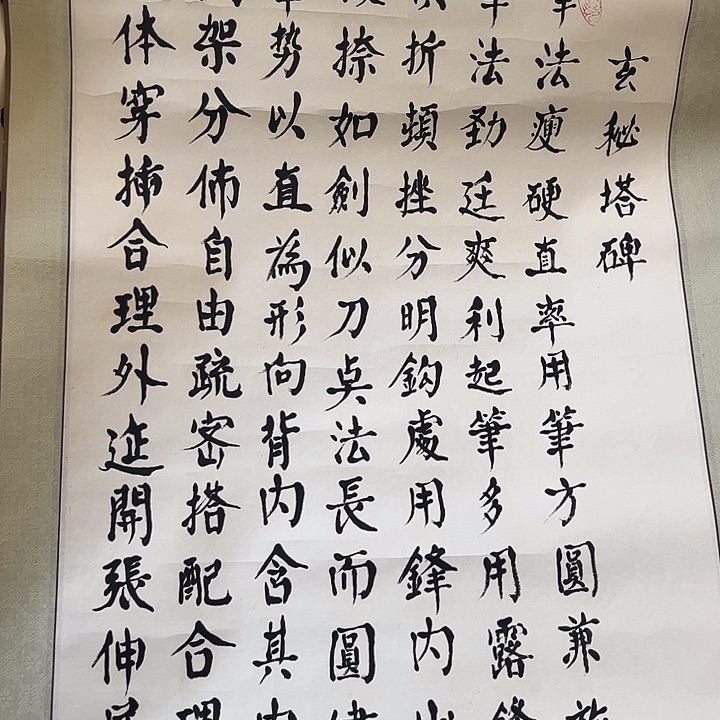 玄秘塔碑
法瘦硬直率用筆方圓兼
法勁廷爽利起筆多用露鋒
折頓挫分明鈎處用鋒内
捺如劍似刀点法長而圓
勢以直為形向背内含其内
架分佈自由疏密搭配合理
体穿插合理外延開張伸